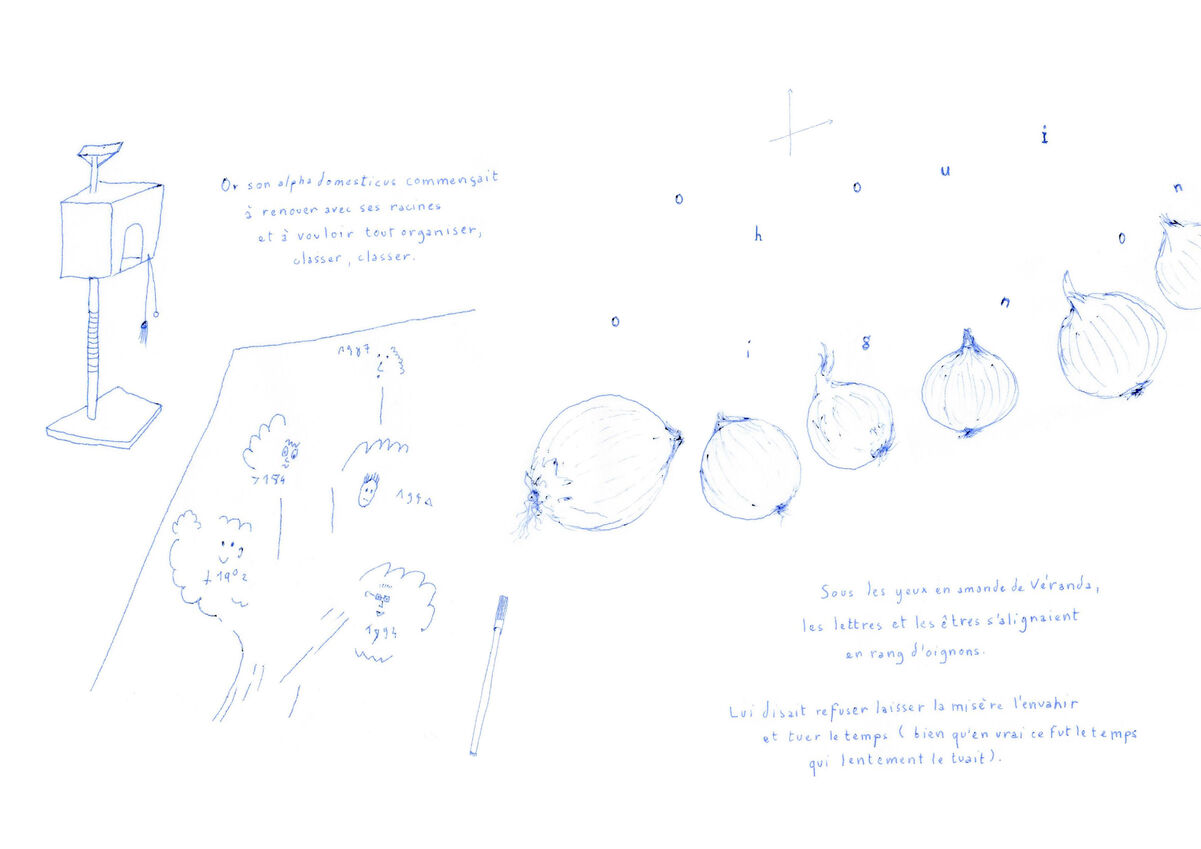 Or son alpha domesticus commençait
à renouer avec ses racines
et à vouloir tout organiser,
classer, classer.
o h o u i
o i g n o n
1987
>184
†1902
1994
Sous les yeux en amande de Véranda,
les lettres et les êtres s'alignaient
en rang d'oignons.
Lui disait refuser laisser la misère l'envahir
et tuer le temps (bien qu'en vrai ce fut le temps
qui lentement le tuait).